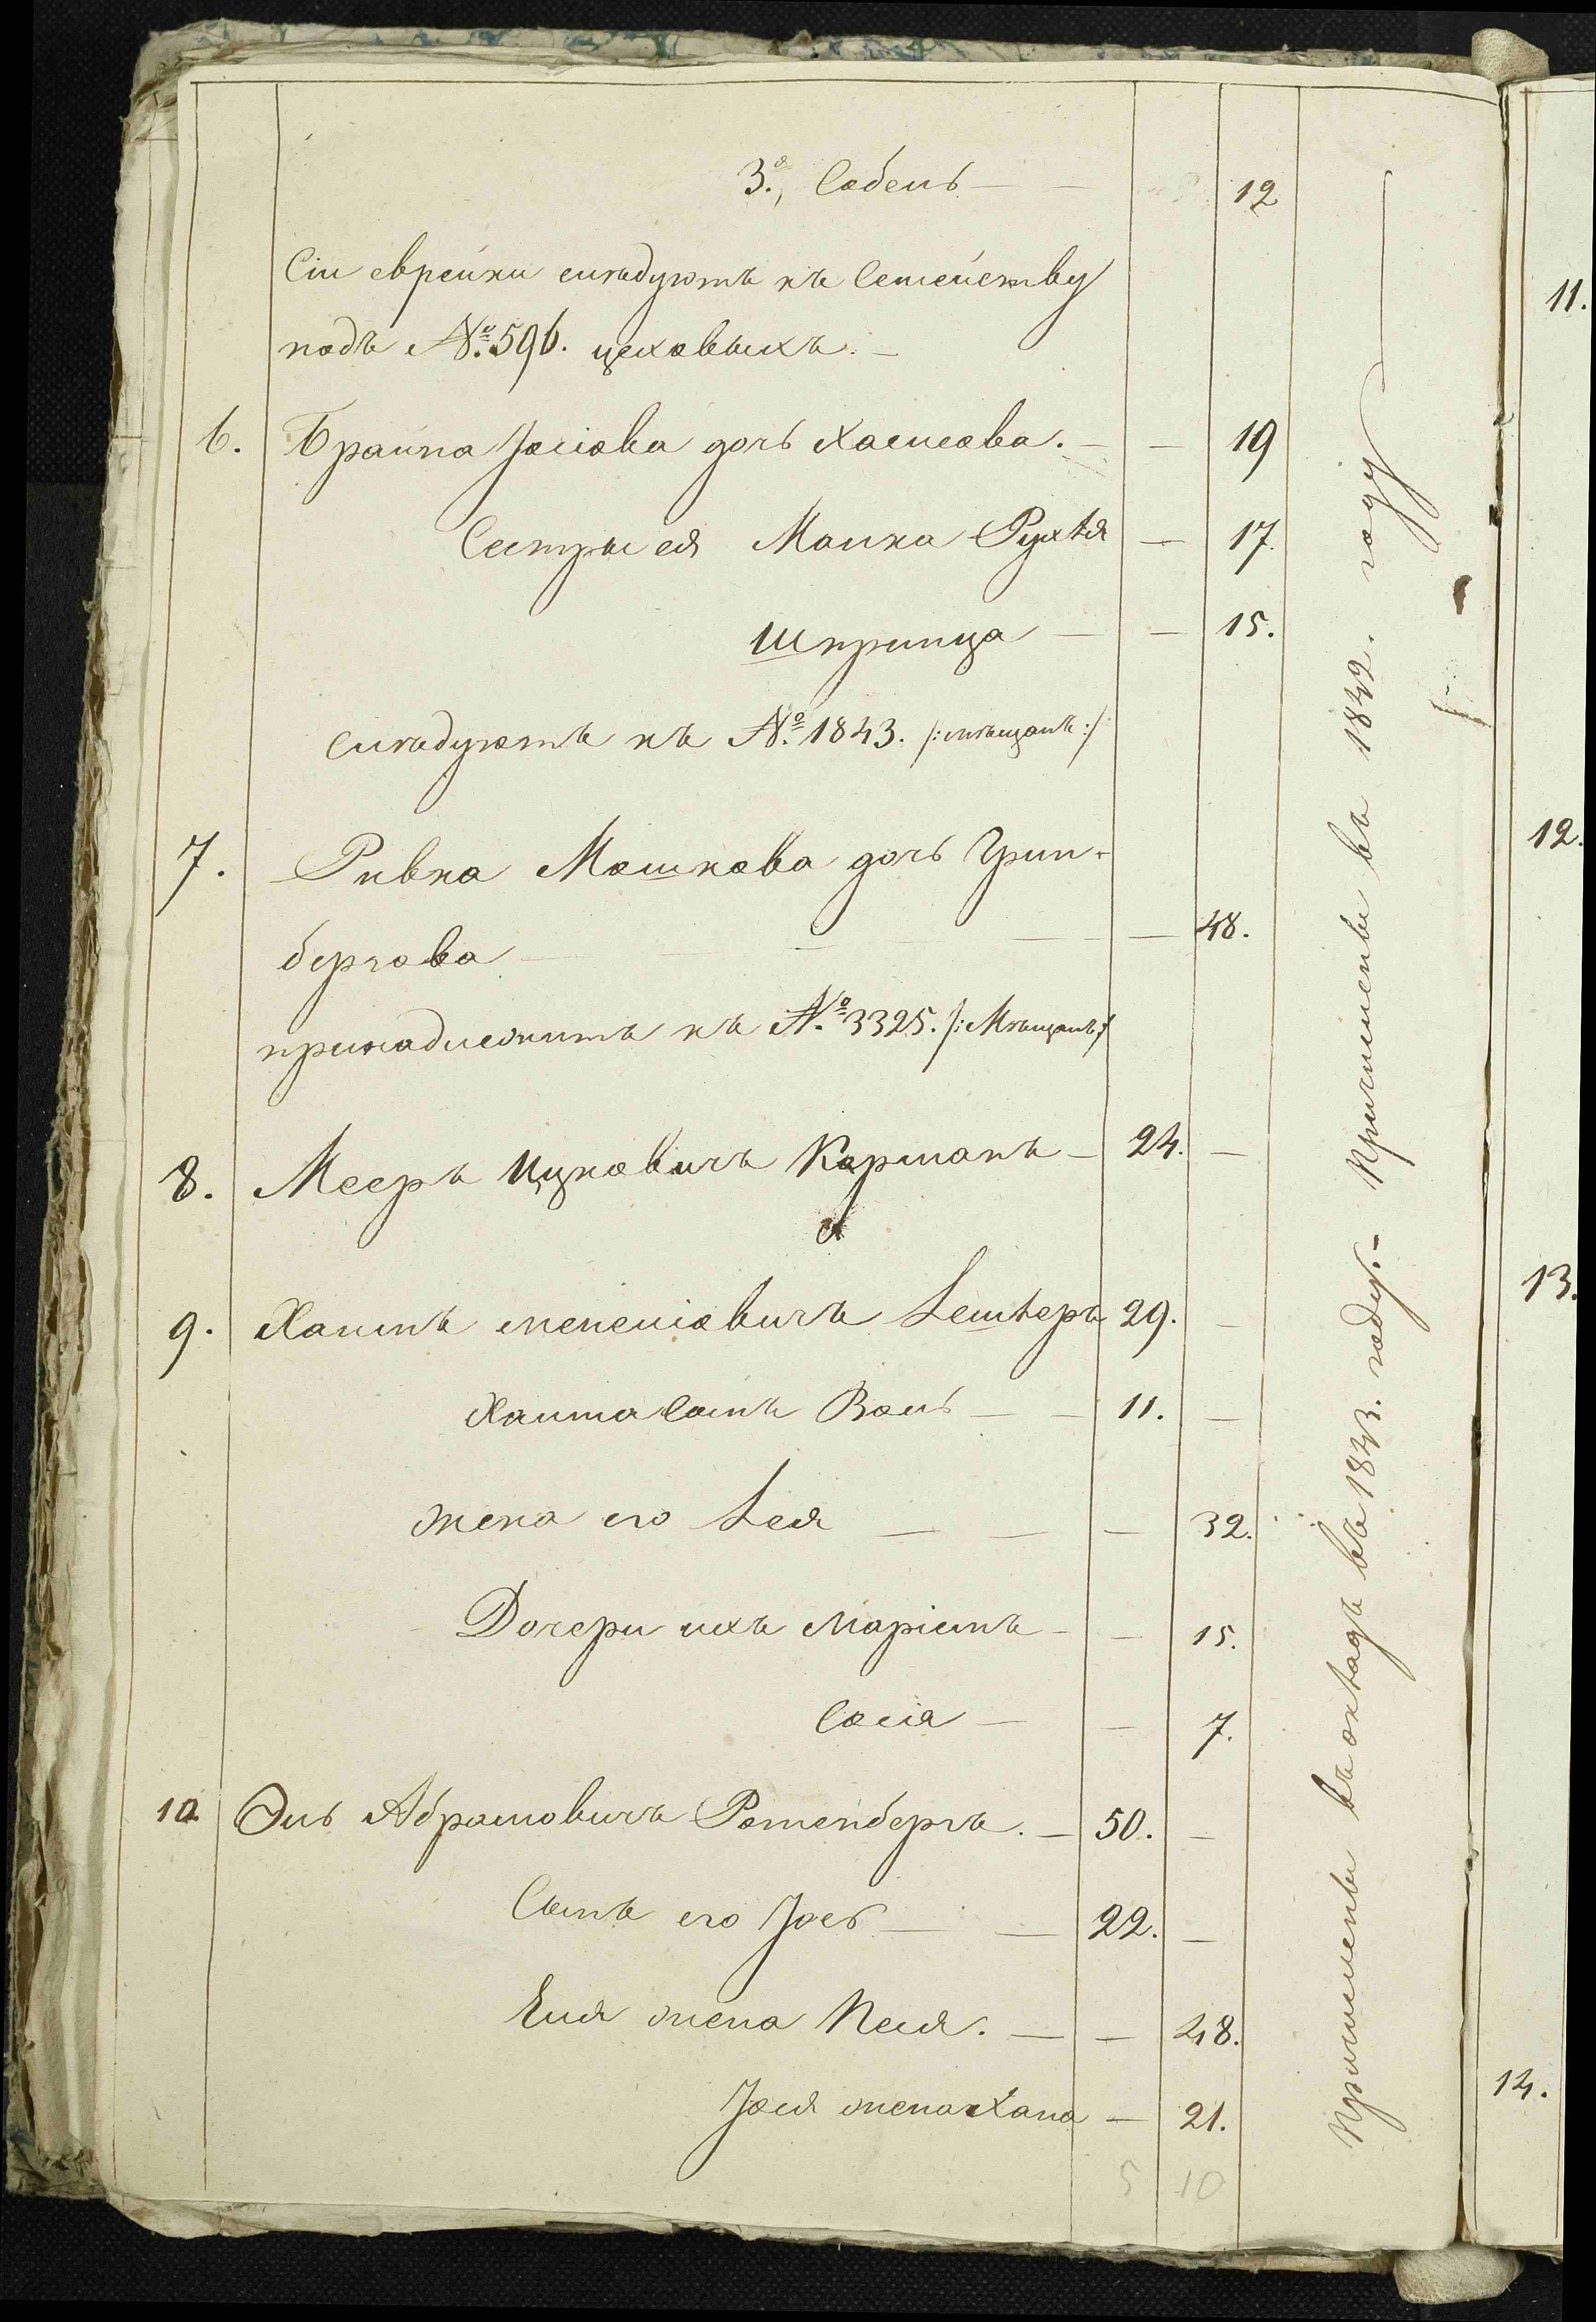 3.е, Собель — — 12
Сіи еврейки слѣдуютъ къ Семейству
подъ №. 596. цеховыхъ. —
6. Брайна Іосіова дочь Хаимова. — — 19
Сестры ея Малка Рухля — 17.
Шпринца — — 15.
слѣдуютъ къ №. 1843. /:мѣщанъ:/
7. Ривка Мошкова дочь Грин-
бергова — — — 48.
принадлежитъ къ №. 3325. /:Мѣщанъ:/
8. Мееръ Ицковичъ Корманъ — 24. —
9. Хаимъ Менеліовичъ Лемперъ 29. —
Хаима Сынъ Волъ — — 11. —
жена его Лея — — — 32.
Дочери ихъ Маріемъ — — 15.
Сосія — — 7.
10 Эль Абрамовичъ Ротенбергъ. — 50. —
Сынъ его Іось — — 22. —
Эля жена Песя. — — 48.
Іося жена Хана — 21.
5 10
Причислены въ окладъ въ 1843. году. — Причислены въ 1842. году
11.
12.
13.
14.